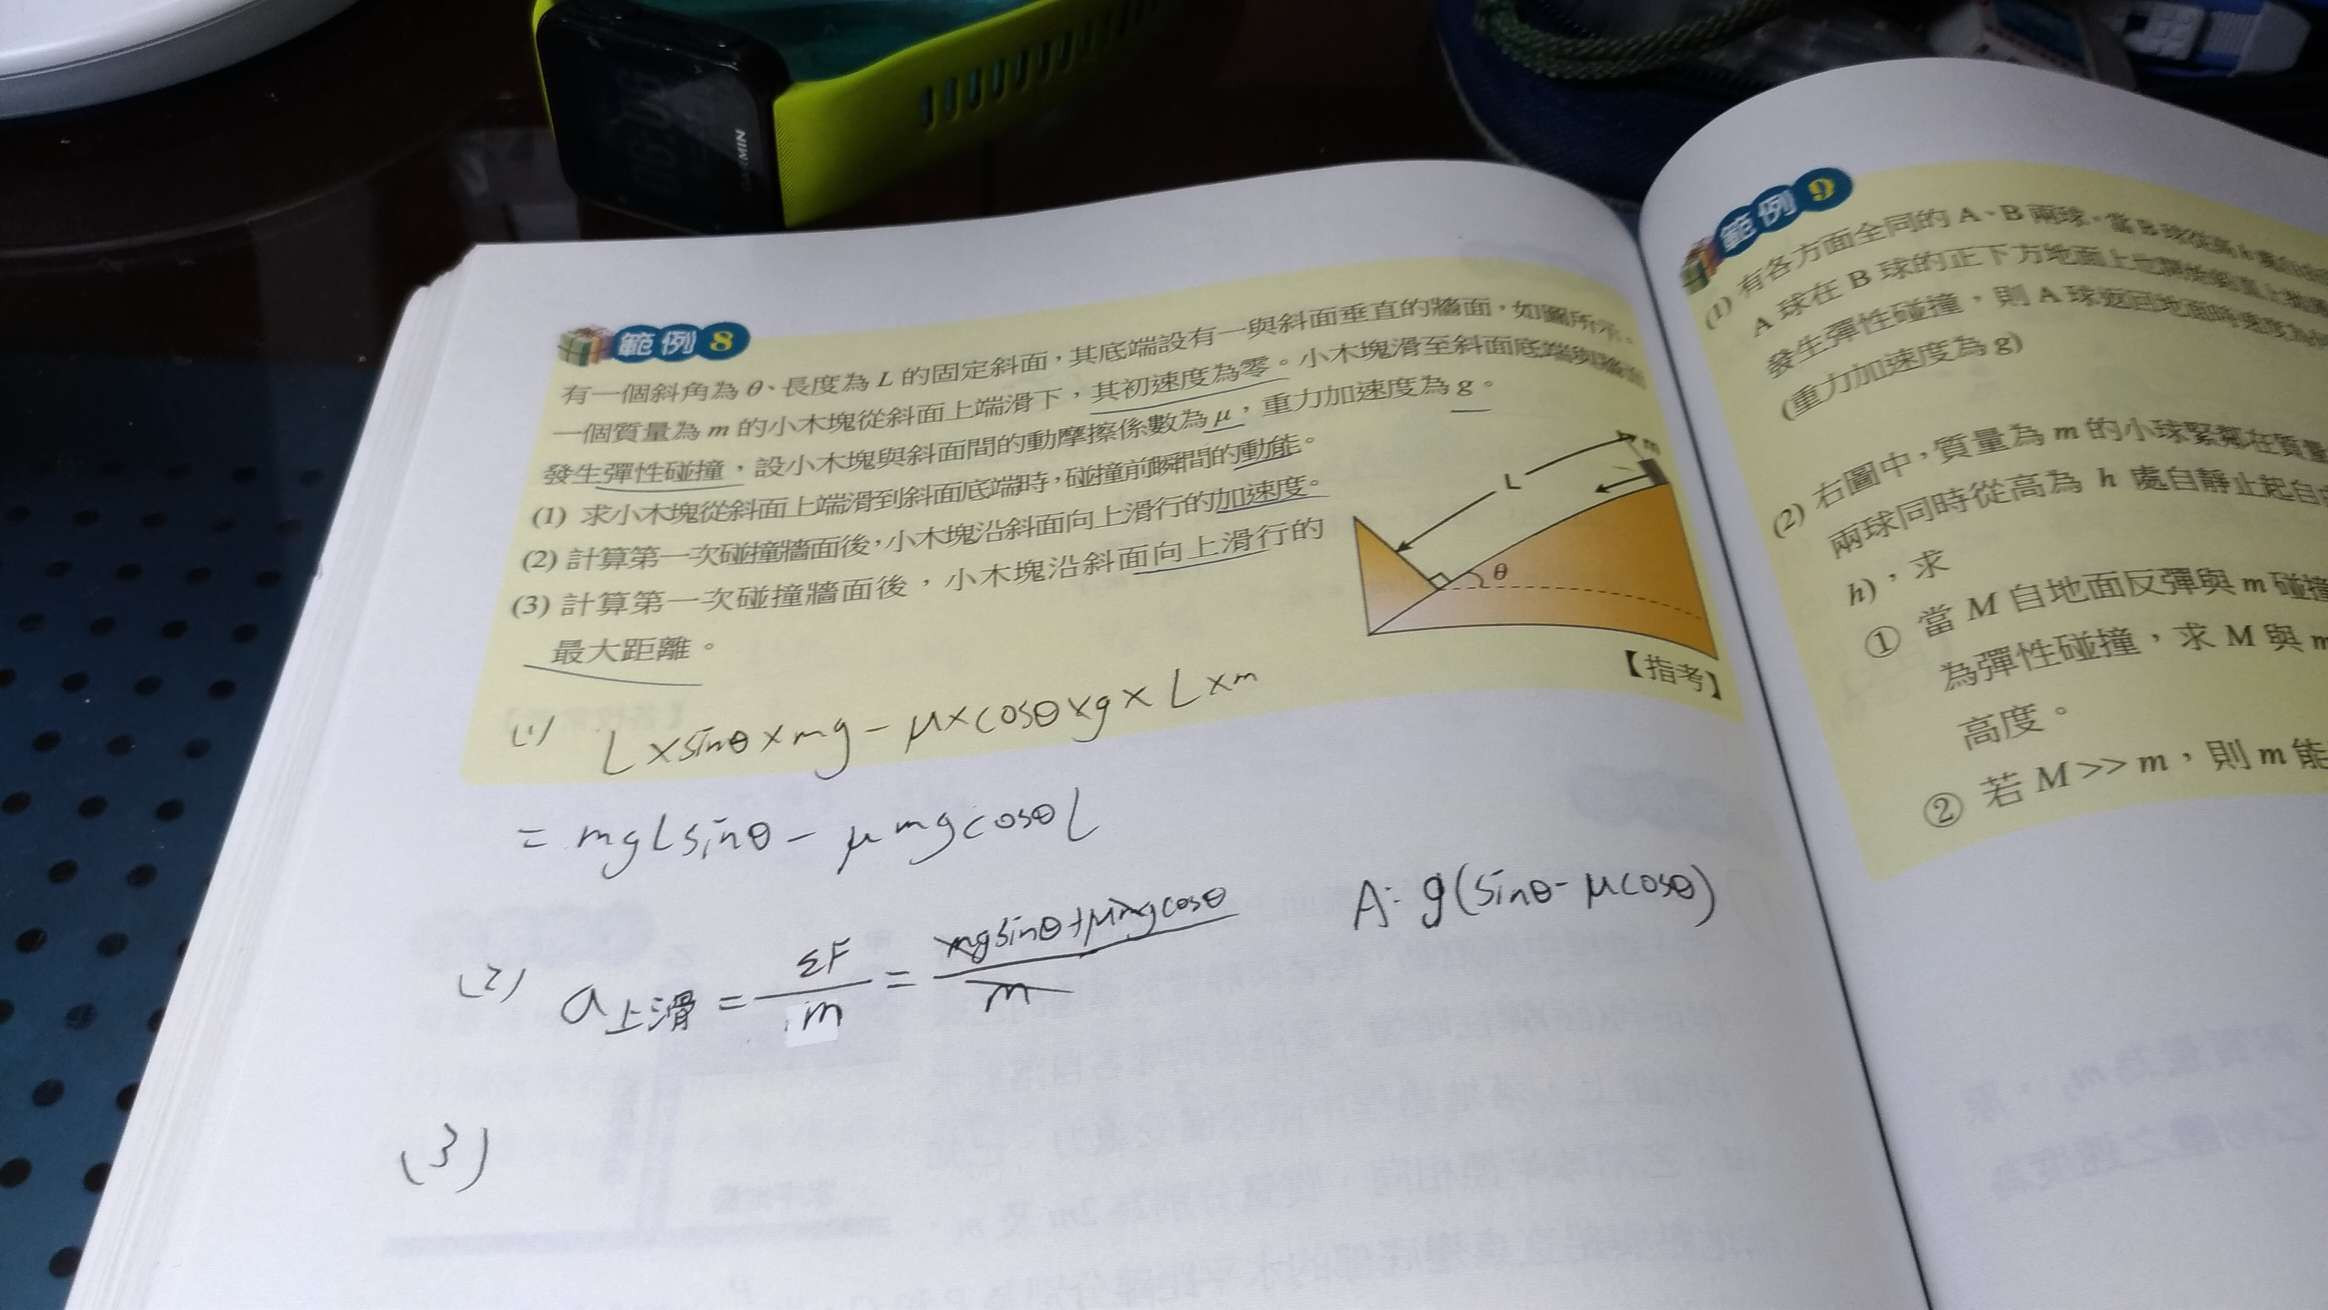 GARMIN
範例 8
有一個斜角為 θ、長度為 L 的固定斜面，其底端設有一與斜面垂直的牆面，如圖所示。
一個質量為 m 的小木塊從斜面上端滑下，其初速度為零。小木塊滑至斜面底端與牆面
發生彈性碰撞，設小木塊與斜面間的動摩擦係數為 μ，重力加速度為 g。
(1) 求小木塊從斜面上端滑到斜面底端時，碰撞前瞬間的動能。
(2) 計算第一次碰撞牆面後，小木塊沿斜面向上滑行的加速度。
(3) 計算第一次碰撞牆面後，小木塊沿斜面向上滑行的
最大距離。
m
L
θ
【指考】
(1) L×sinθ×mg−μ×cosθ×g×L×m
= mgLsinθ − μmgcosθL
(2) a上滑 = ΣF/m = mgsinθ+μmgcosθ/m
A: g(sinθ-μcosθ)
(3)
範例 9
(1) 有各方面全同的 A、B 兩球，當 B 球從高 h
A 球在 B 球的正下方地面上也開始鉛直上拋
發生彈性碰撞，則 A 球返回地面時速度為
(重力加速度為 g)
(2) 右圖中，質量為 m 的小球緊鄰在質量
兩球同時從高為 h 處自靜止起自
h)，求
① 當 M 自地面反彈與 m 碰撞
為彈性碰撞，求 M 與 m
高度。
② 若 M >> m，則 m 能